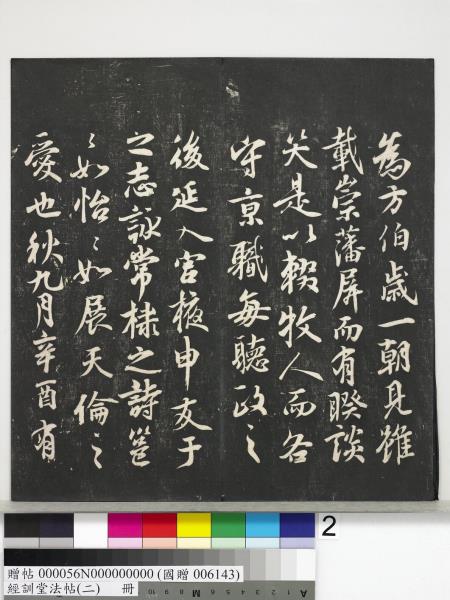 為方伯歲一朝見雖
載崇藩屏而有睽談
笑是以輟牧人而各
守京職每聽政之
後延入宮掖申友于
之志詠常棣之詩邕
邕如怡怡如展天倫之
愛也秋九月辛酉有
2
贈帖 000056N000000000 (國贈 006143)
經訓堂法帖(二) 冊